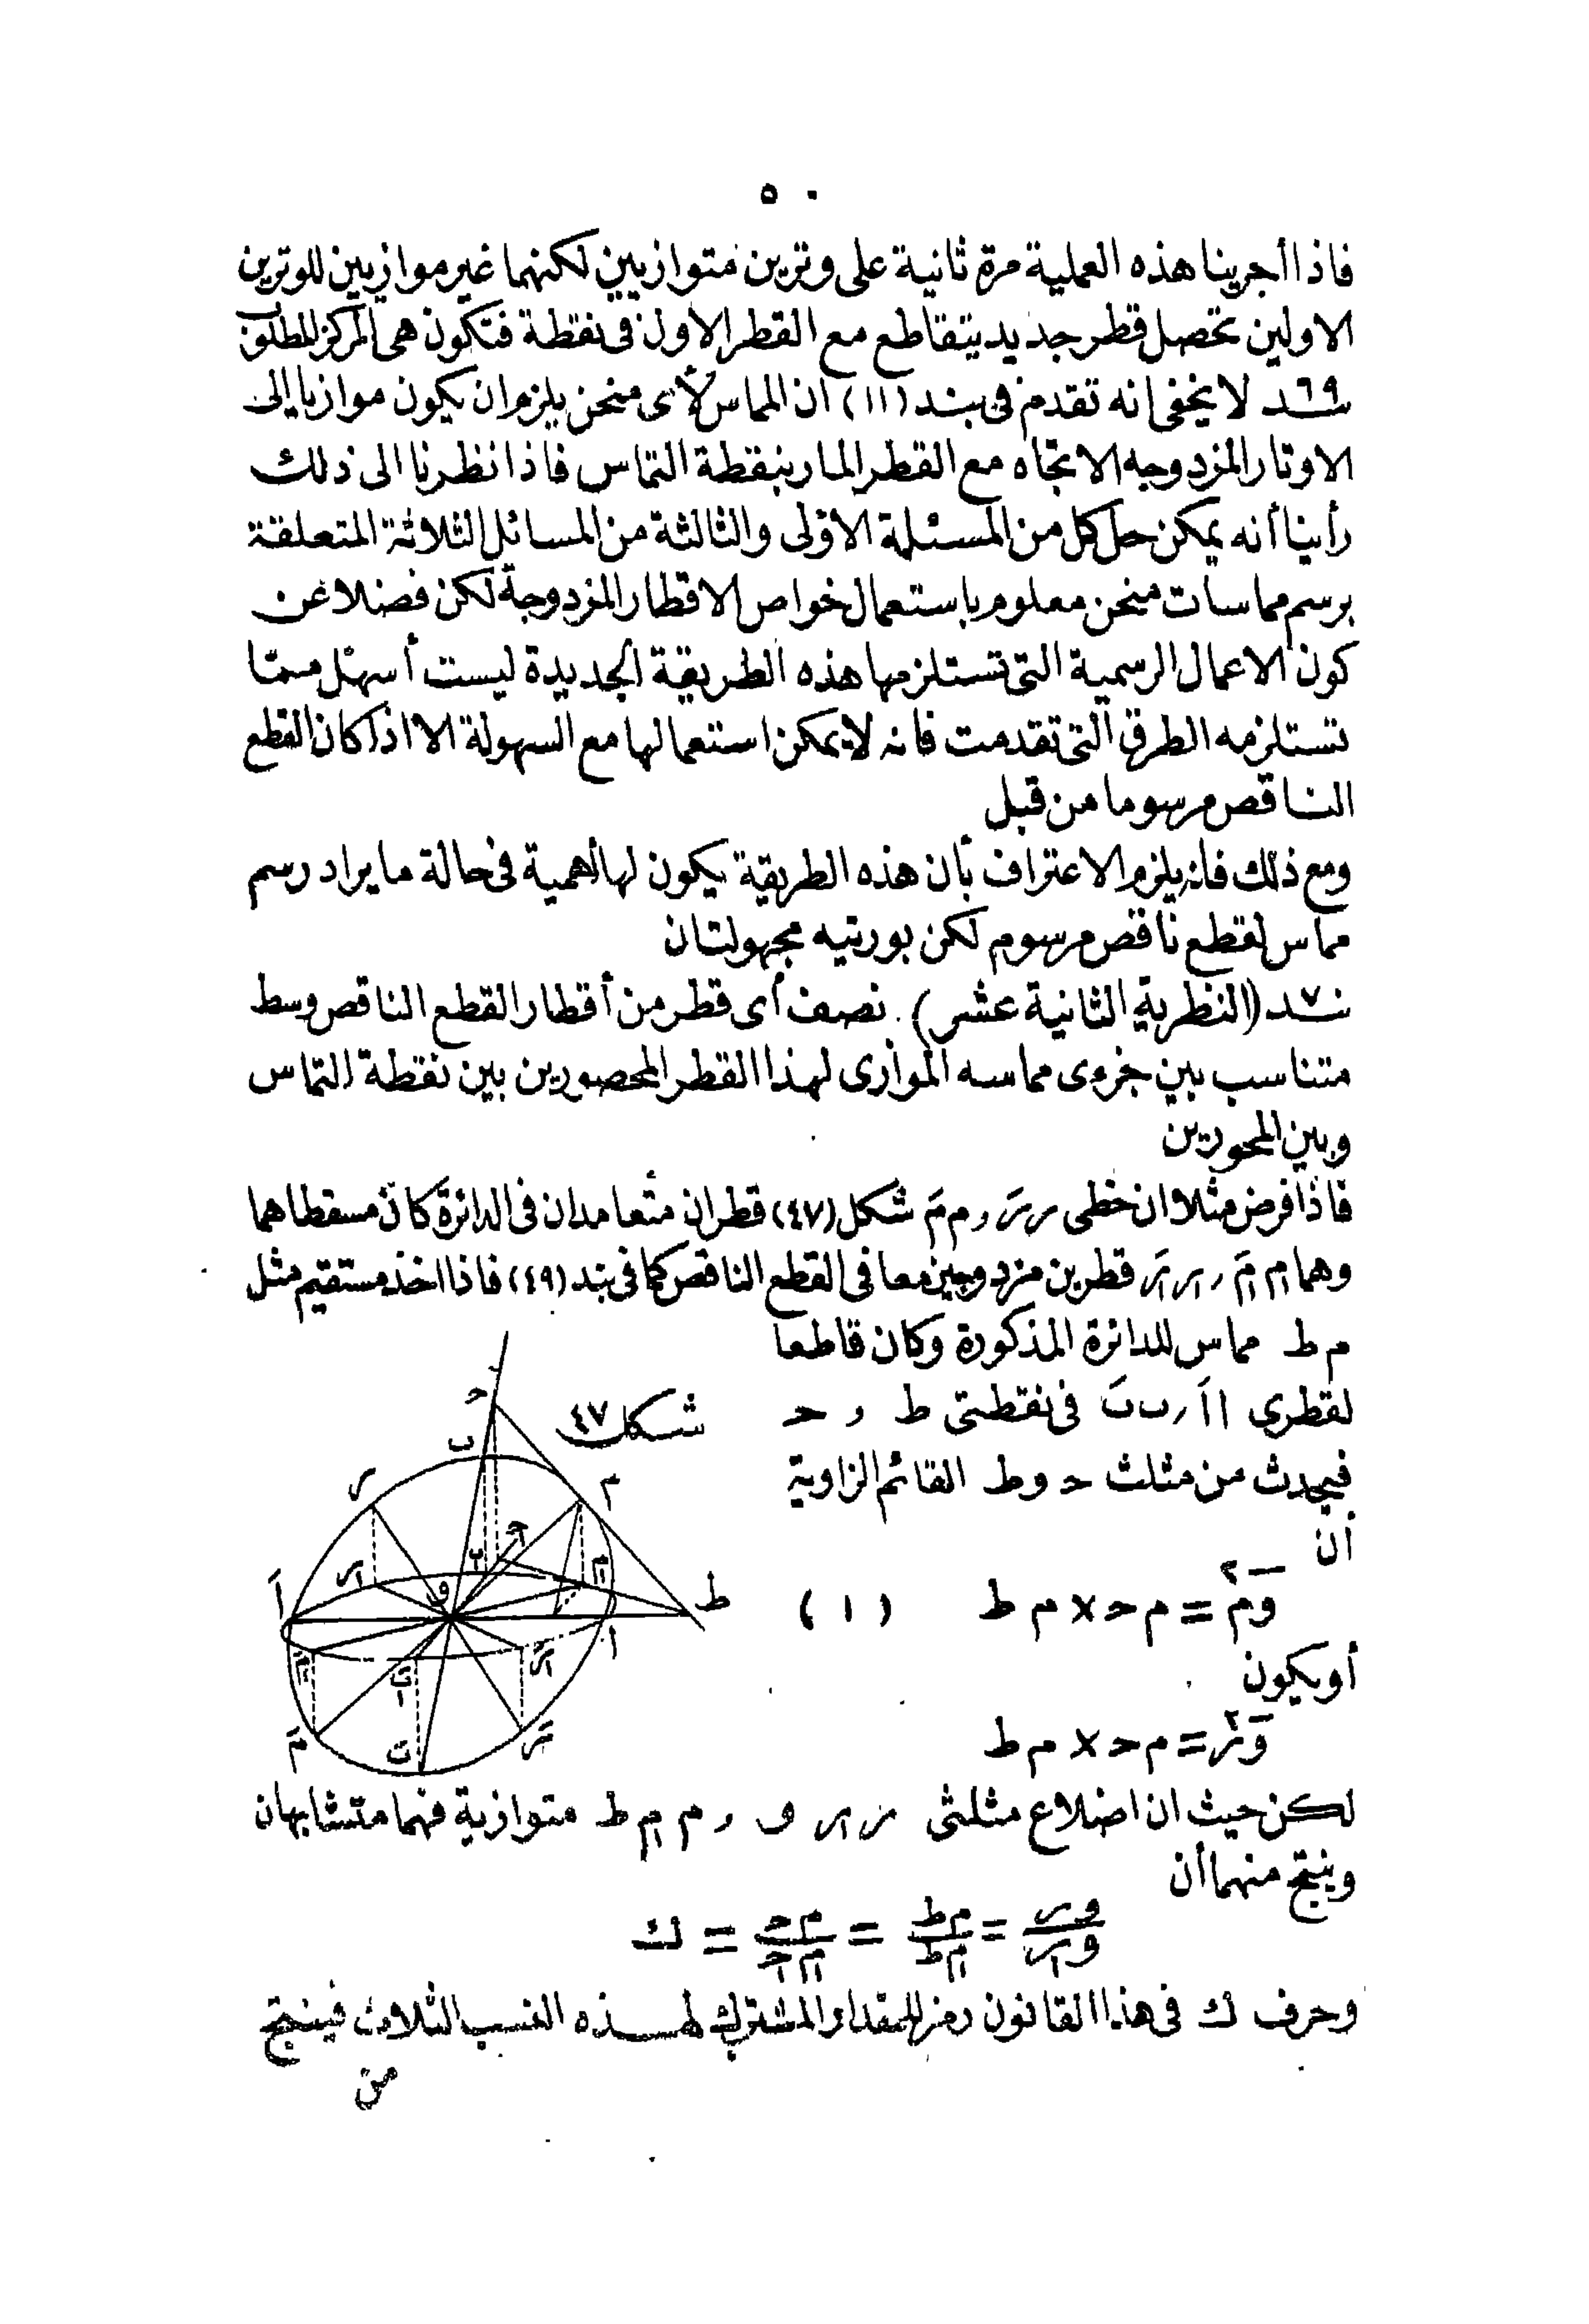 ٥٠
فاذا أجرينا هذه العملية مرة ثانية على وترين متوازيين لكنهما غير موازيين للوترين
الاولين تحصل قطر جديد يتقاطع مع القطر الاول فى نقطة فتكون هى المركز المطلوب
٦٩ بند لا يخفى انه تقدم فى بند (١١) ان المماس لأى منحن يلزم ان يكون موازيا الى
الاوتار المزدوجه الاتجاه مع القطر المار بنقطة التماس فاذا نظرنا الى ذلك
رأينا أنه يمكن حل كل من المسئلة الاولى والثالثة من المسائل الثلاثة المتعلقة
برسم مماسات منحن معلوم باستعمال خواص الاقطار المزدوجة لكن فضلا عن
كون الاعمال الرسمية التى تستلزمها هذه الطريقة الجديدة ليست أسهل ممّا
تستلزمه الطرق التى تقدمت فانه لا يمكن استعمالها مع السهولة الا اذا كان القطع
الناقص مرسوما من قبل
ومع ذلك فانه يلزم الاعتراف بأن هذه الطريقة يكون لها أهمية فى حالة ما يراد رسم
مماس لقطع ناقص مرسوم لكن بورتيه مجهولتان
٧٠ بند (النظرية الثانية عشر) نصف أى قطر من أقطار القطع الناقص وسط
متناسب بين جزءى مماسه الموازى لهذا القطر المحصورين بين نقطة التماس
وبين المحورين
فاذا فرض مثلا ان خطى ر رَ و م مَ شكل (٤٧) قطران متعامدان فى الدائرة كان مسقطاهما
وهما م مَ و ر رَ قطرين مزدوجين معا فى القطع الناقص كما فى بند (٤٩) فاذا اخذ مستقيم مثل
م ط مماس للدائرة المذكورة وكان قاطعا
لقطرى ا اَ و ب بَ فى نقطتى ط و ح
فيحدث من مثلث ح و ط القائم الزاوية
أن
وم٢ = م ح × م ط (١)
أو يكون
ور٢ = م ح × م ط
شكل ٤٧
لكن حيث ان اضلاع مثلثى ر ر١ و و م م١ ط متوازية فهما متشابهان
وينتج منهما أن
ور/ور١ = م ط/م١ ط = م ح/م١ ح١ = ك
وحرف ك فى هذا القانون رمز للمقدار المشترك لهذه النسب الثلاث فينتج
من